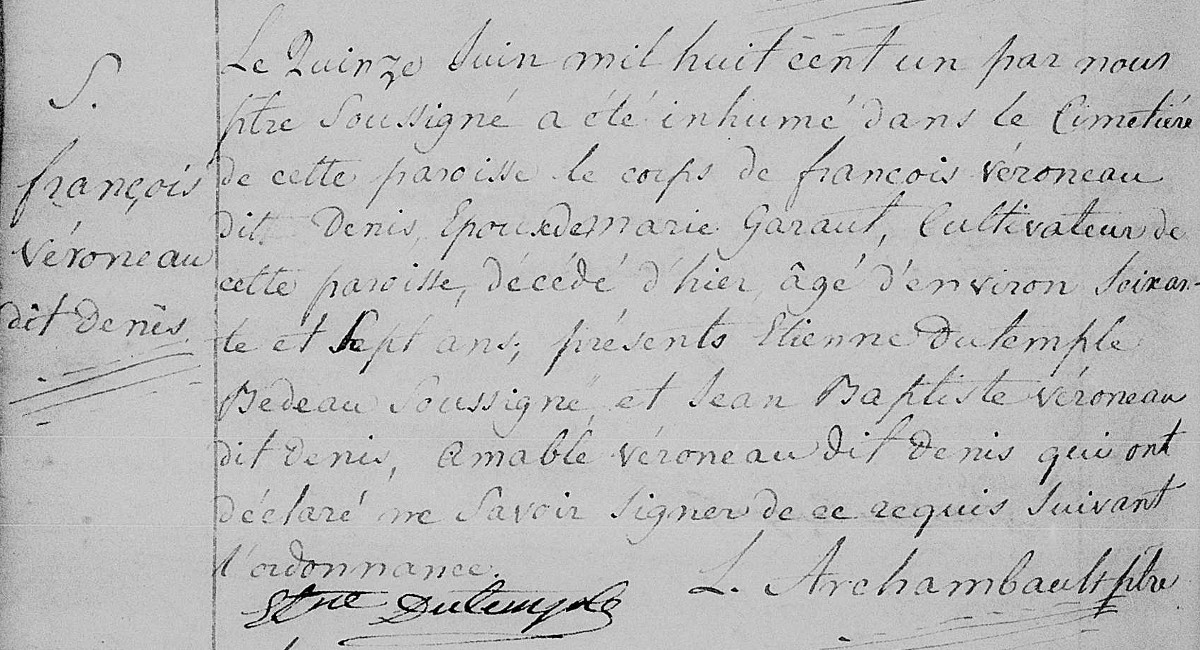 S.
françois
véroneau
dit denis
Le Quinze Juin mil huit cent un par nous
ptre Soussigné a été inhumé dans le Cimetiére
de cette paroisse le corps de françois véroneau
dit Denis, Epoux de Marie Garaut, Cultivateur de
cette paroisse, décédé d'hier, âgé d'environ Soixan-
te et Sept ans, présents Etienne Dutemple
Bedeau Soussigné, et Jean Baptiste véroneau
dit Denis, Amable véroneau dit Denis qui ont
déclaré ne Savoir Signer de ce requis Suivant
l'ordonnance.
Etne Dutemple
L. Archambault ptre